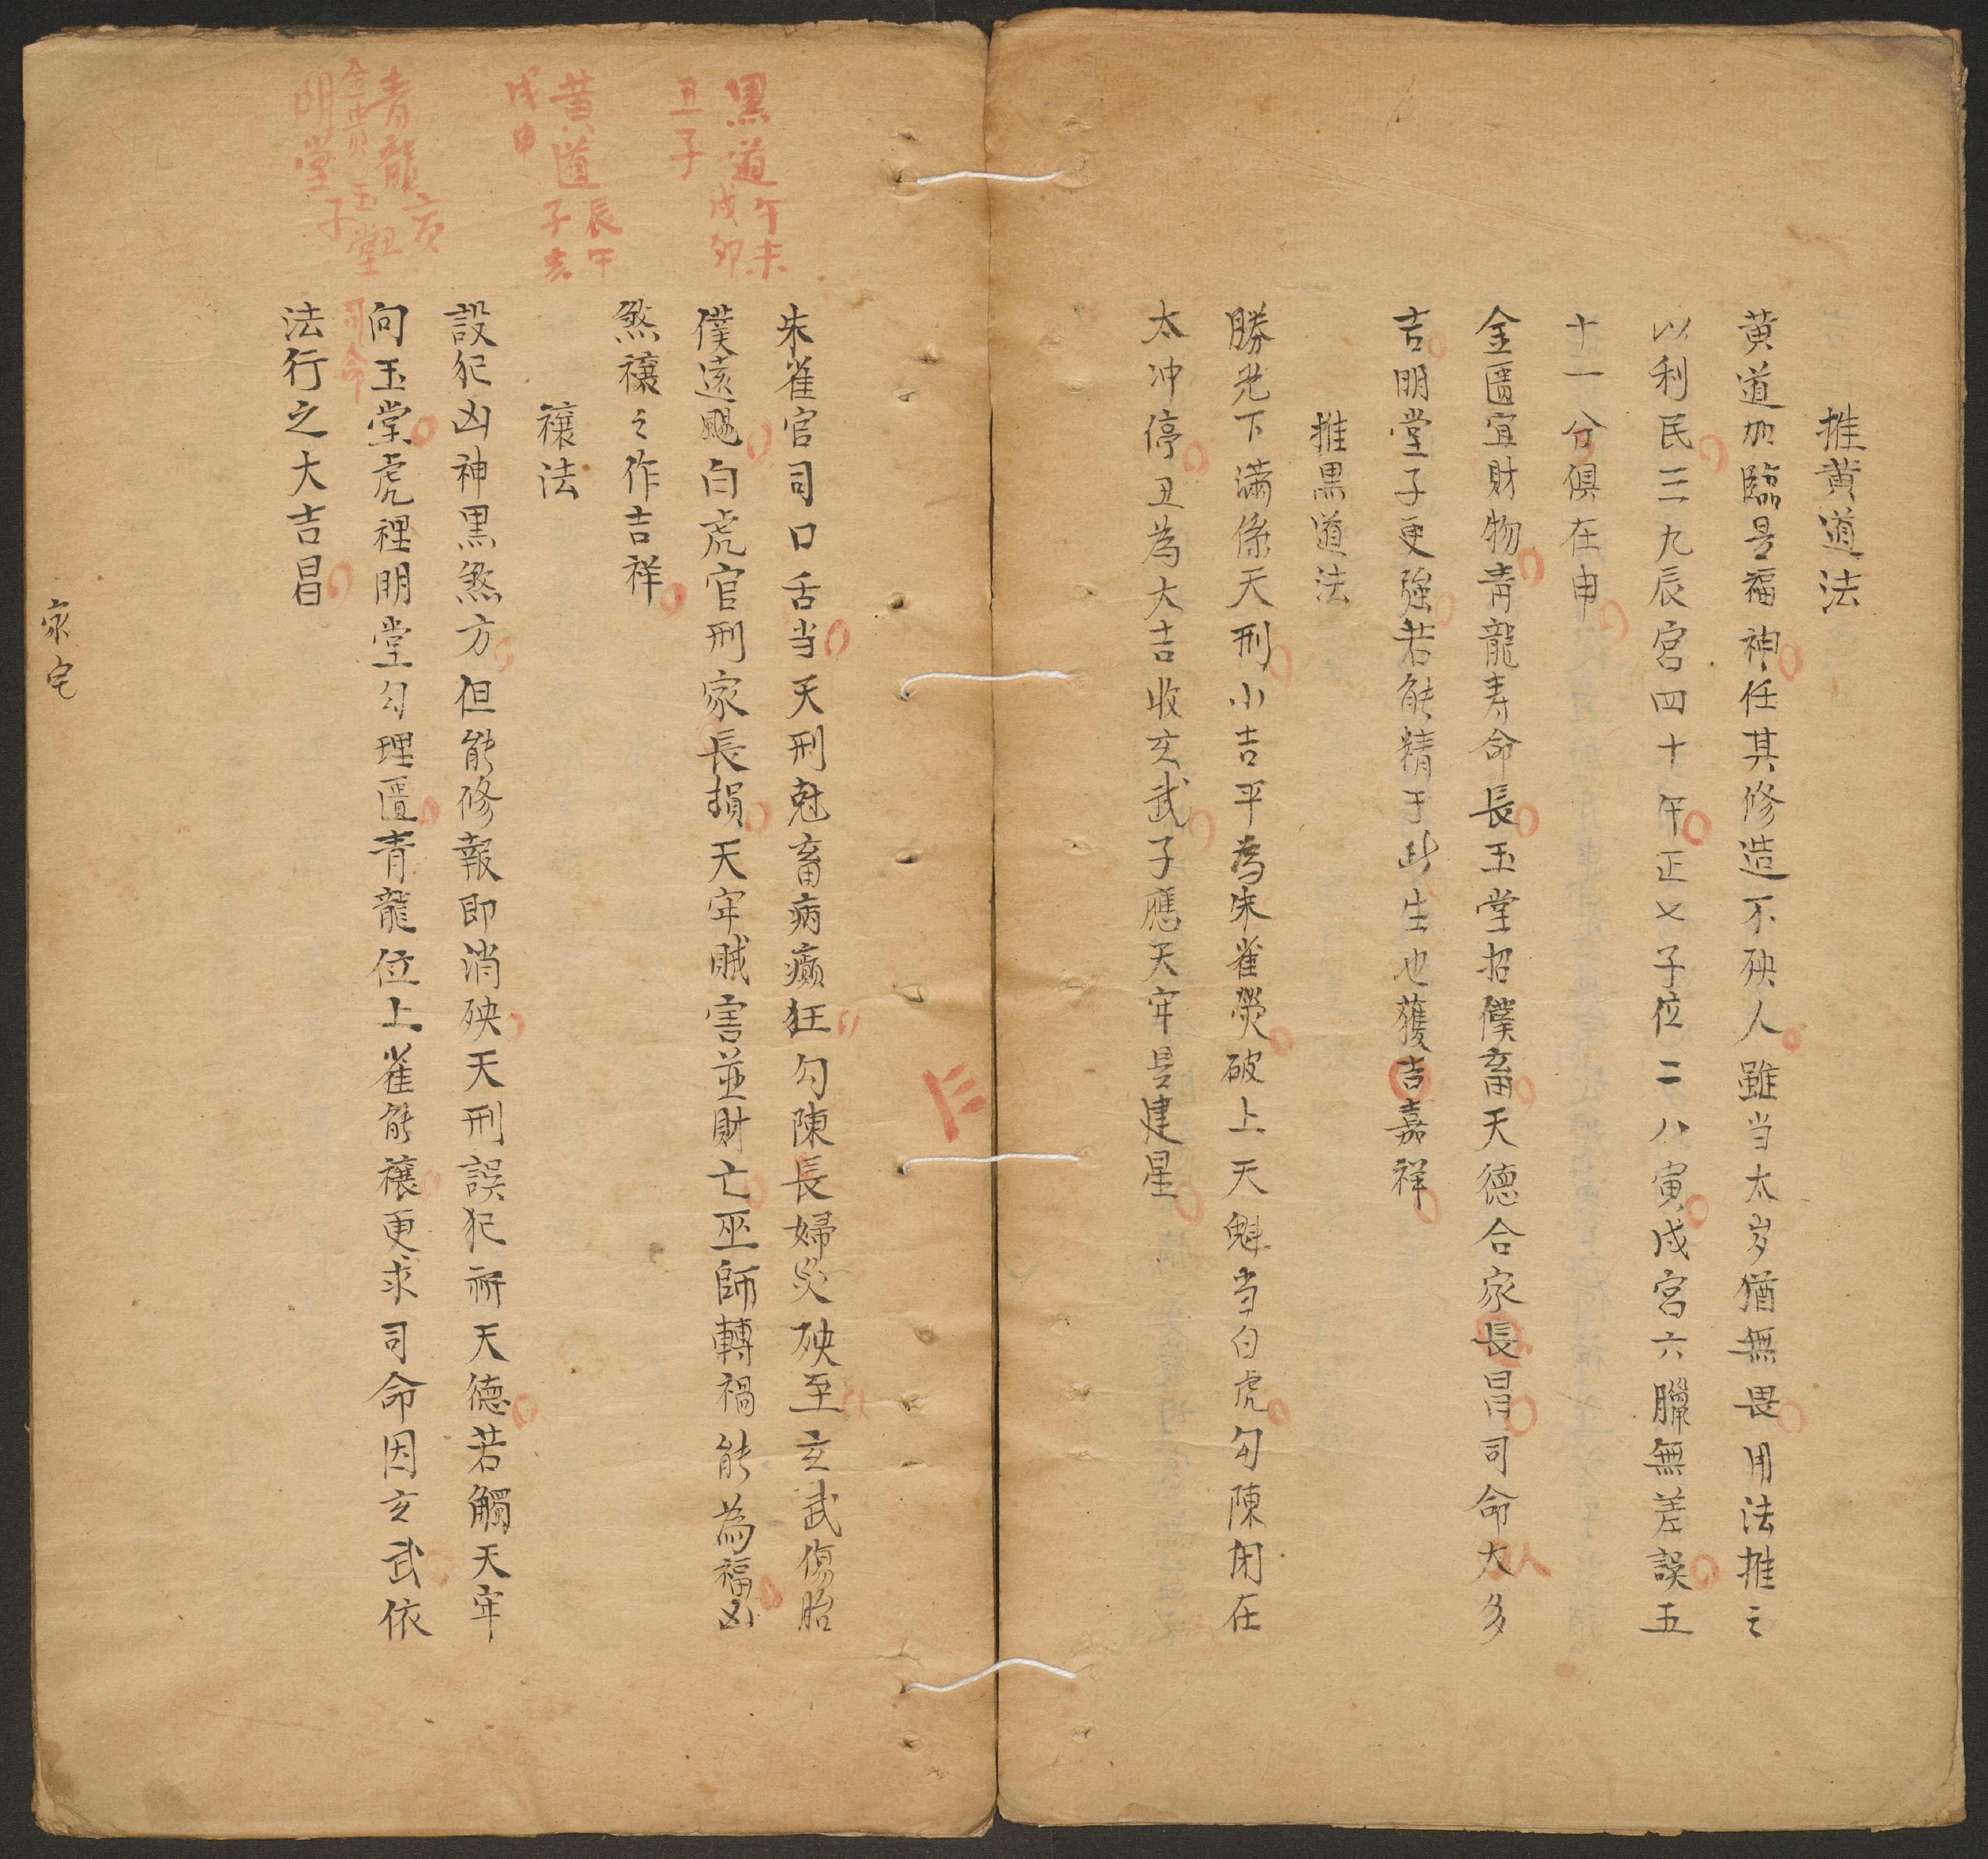 推黄道法
黄道加臨是福神任其修造不殃人雖当太岁猶無畏用法推之
以利民三九辰宮四十午正七子位二八寅戌宮六臘無差誤五
十一分俱在申
金匱宜財物青龍寿命長玉堂招僕畜天德合家長昌司命大多
吉明堂子更強若能精于此生也獲吉嘉祥
推黒道法
勝光下滿係天刑小吉平為朱雀熒破上天魁当白虎勾陳闭在
太冲停丑為大吉收玄武子應天牢是建星
黒道午未
戌卯
丑子
黄道辰午
子亥
戌申
青龍亥
金匱玉堂丑
明堂子
司命
朱雀官司口舌当天刑尅畜病癲狂勾陳長婦災殃至玄武傷胎
僕遠颺白虎官刑家長損天牢賊害並財亡巫師轉禍能為福凶
煞禳之作吉祥
禳法
設犯凶神黒煞方但能修報即消殃天刑誤犯祈天德若觸天牢
向玉堂虎裡明堂勾理匱青龍位上雀能禳更求司命因玄武依
法行之大吉昌
家宅